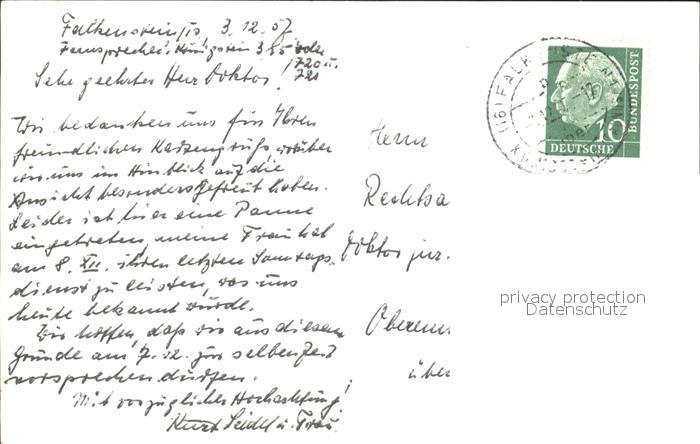 Falkenstein/Ts, 3.12.57
Fernsprecher Königstein 385 oder
720 u.
721
Sehr geehrter Herr Doktor!
Wir bedanken uns für Ihren
freundlichen Kartengruß worüber
wir uns im Hinblick auf die
Ansicht besonders gefreut haben.
Leider ist hier eine Panne
eingetreten, meine Frau hat
am 8. XII. ihren letzten Sonntags-
dienst zu leisten, was uns
heute bekannt wurde.
Wir hoffen, daß wir aus diesem
Grunde am 7.12. zur selben Zeit
vorsprechen dürfen.
Mit vorzüglicher Hochachtung!
Kurt Seidel u. Frau
Herrn
Rechtsa
Doktor jur.
Oberem
über
(16) FALKENSTEIN
10
DEUTSCHE
BUNDESPOST
privacy protection
Datenschutz